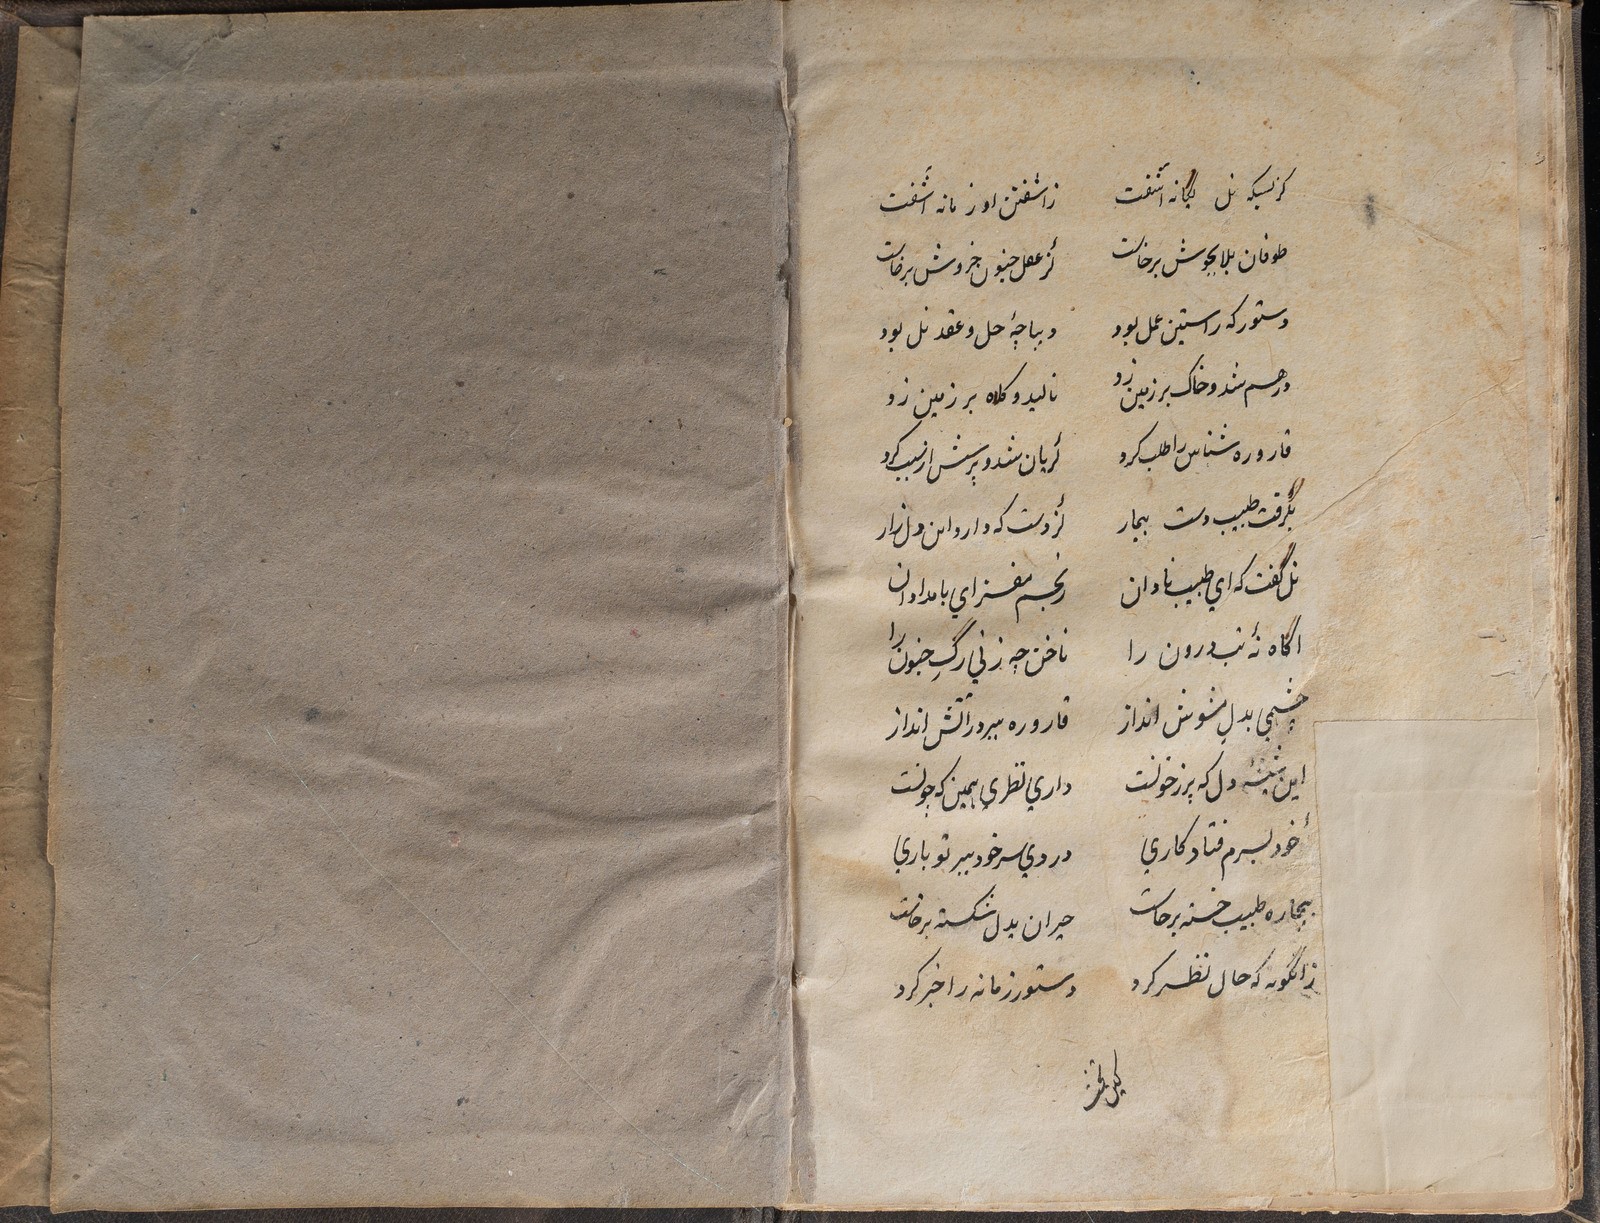 کز بسکه نل یگانه آشفت زآشفتن او زمانه آشفت
طوفان بلا بجوش برخاست کز عقل جنون خروش برخاست
دستور که راستین عمل بود دیباچهٔ حل و عقد نل بود
درهم شد و خاک بر زمین زد نالید و کلاه بر زمین زد
قاروره شناس را طلب کرد گریان شد و پرسش از سبب کرد
بگرفت طبیب دست بیمار کز دست که دارد این دل زار
نل گفت که اي طبیب نادان رنجم مفزاي بامدادان
اگاه نهٔ تب درون را ناخن چه زني رگِ جنون را
چشمي بدلِ مشوش انداز قاروره ببر در آتش انداز
این شیشهٔ دل که پر ز خونست داري نظري ببین که چونست
خود بسرم فتاد کاري دردي سر خود ببر تو باري
بیچاره طبیب خسته برخاست حیران بدل شکسته برخاست
زانگونه که حال نظر کرد دستور زمانه را خبر کرد